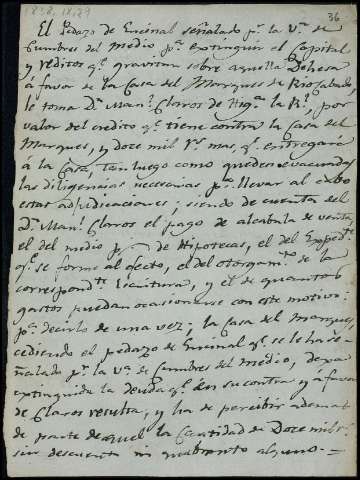 36
El Pedazo de Encinal señalado pr. la Va. de
Cumbres del Medio pa. extinguir el Capital
y reditos qe. gravitan sobre aquella Dehesa
á favor de la Casa del Marques de Rioscabado,
le toma Dn. Manl. Claros de Higa. la Rl., por
valor del credito qe. tiene contra la Casa del
Marques, y doce mil rs. mas, qe. entregará
á la Casa, tan luego como queden evacuadas
las diligencias necesarias pa. llevar al cabo
estas adjudicaciones; siendo de cuenta del
Dn. Manl. Claros el pago de alcabala de venta,
el del medio p de Hipotecas, el del Expedte.
qe. se forme al efecto, el del otorgamto. de la
correspondte. Escritura, y el de quantos
gastos puedan ocasionarse con este motivo:
pa. decirlo de una vez; la Casa del Marques,
cediendo el pedazo de Encinal qe. se le ha se-
ñalado pr. la Va. de Cumbres del medio, dexa
extinguida la deuda qe. en su contra y á favor
de Claros resulta, y ha de percibir ademas
de parte de aquel la Cantidad de Doce mil rs.
sin descuento ni quebranto alguno.